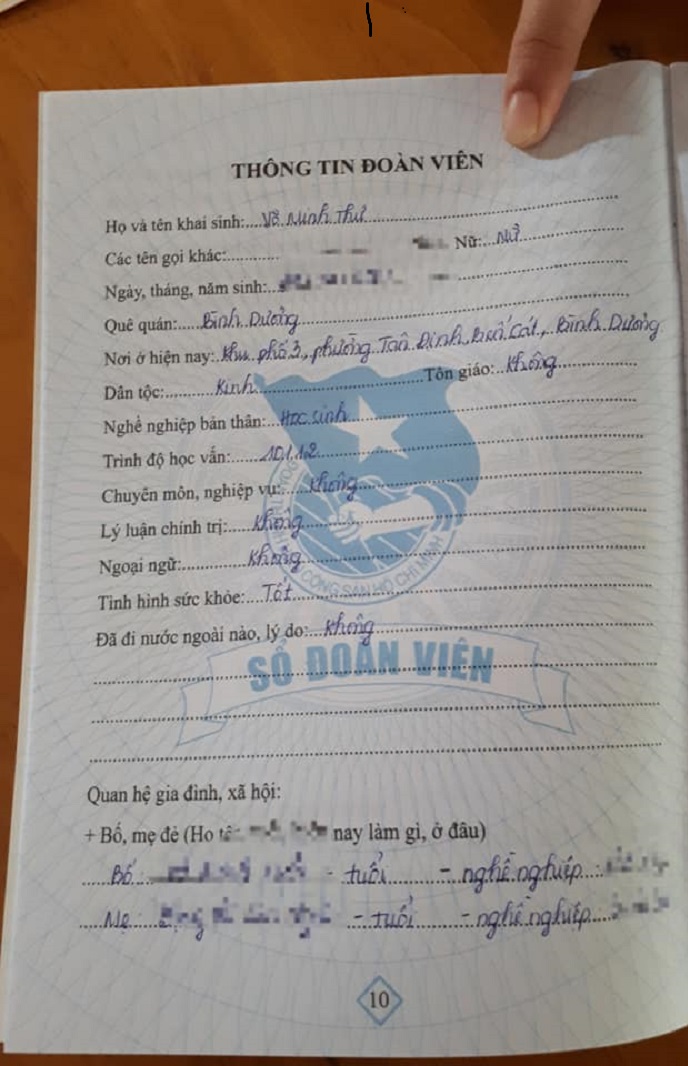 THÔNG TIN ĐOÀN VIÊN
Họ và tên khai sinh: Võ Minh Thư
Các tên gọi khác: Nữ: Nữ
Ngày, tháng, năm sinh:
Quê quán: Bình Dương
Nơi ở hiện nay: Khu phố 3, phường Tân Định, Bến Cát, Bình Dương
Dân tộc: Kinh Tôn giáo: Không
Nghề nghiệp bản thân: Học sinh
Trình độ học vấn: 10/12
Chuyên môn, nghiệp vụ: Không
Lý luận chính trị: Không
Ngoại ngữ: Không
Tình hình sức khỏe: Tốt
CỘNG SẢN HỒ CHÍ MINH
Đã đi nước ngoài nào, lý do: Không
SỔ ĐOÀN VIÊN
Quan hệ gia đình, xã hội:
+ Bố, mẹ đẻ (Họ nay làm gì, ở đâu)
Bố - tuổi - nghề nghiệp:
Mẹ: - tuổi - nghề nghiệp
10